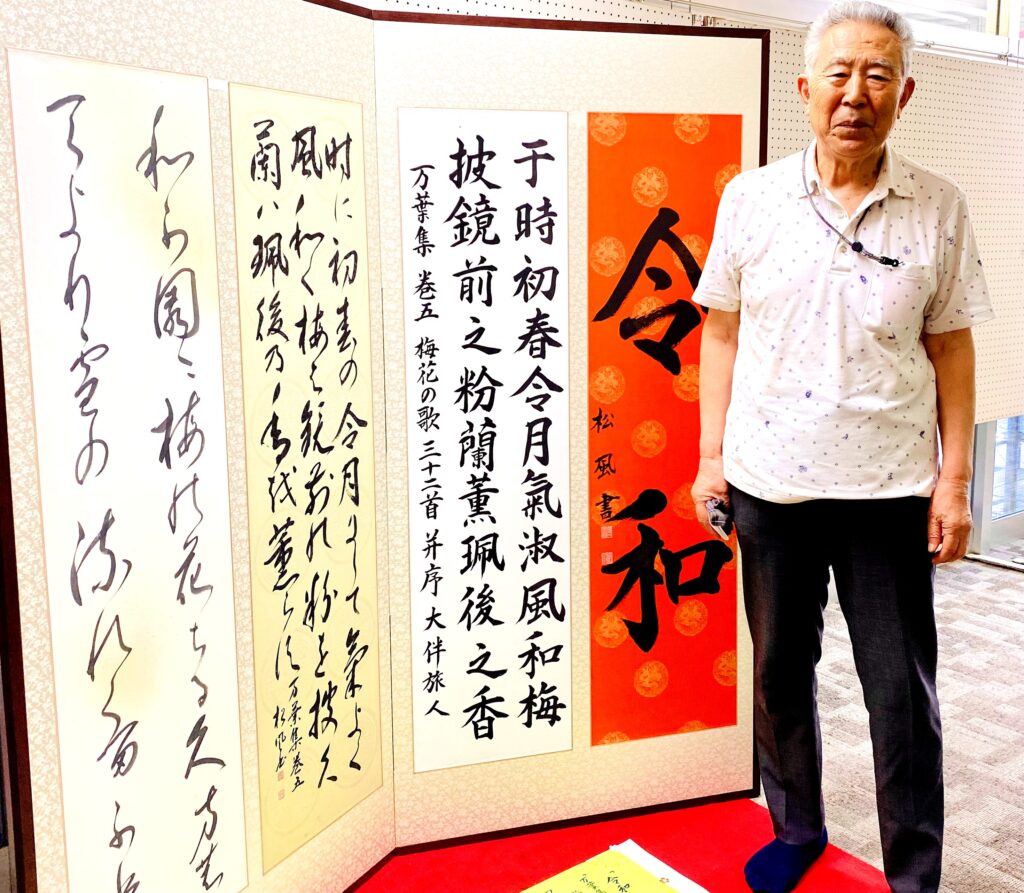 令和
松風書
于時初春令月氣淑風和梅
披鏡前之粉蘭薫珮後之香
万葉集 巻五 梅花の歌 三十二首 并序 大伴旅人
時に初春の令月にして氣よく
風和く梅は鏡前の粉を披久
蘭ハ珮後乃香越薫らす 万葉集巻五
松風書
和可園ニ梅能花ちる久方能
天より雪の流れ